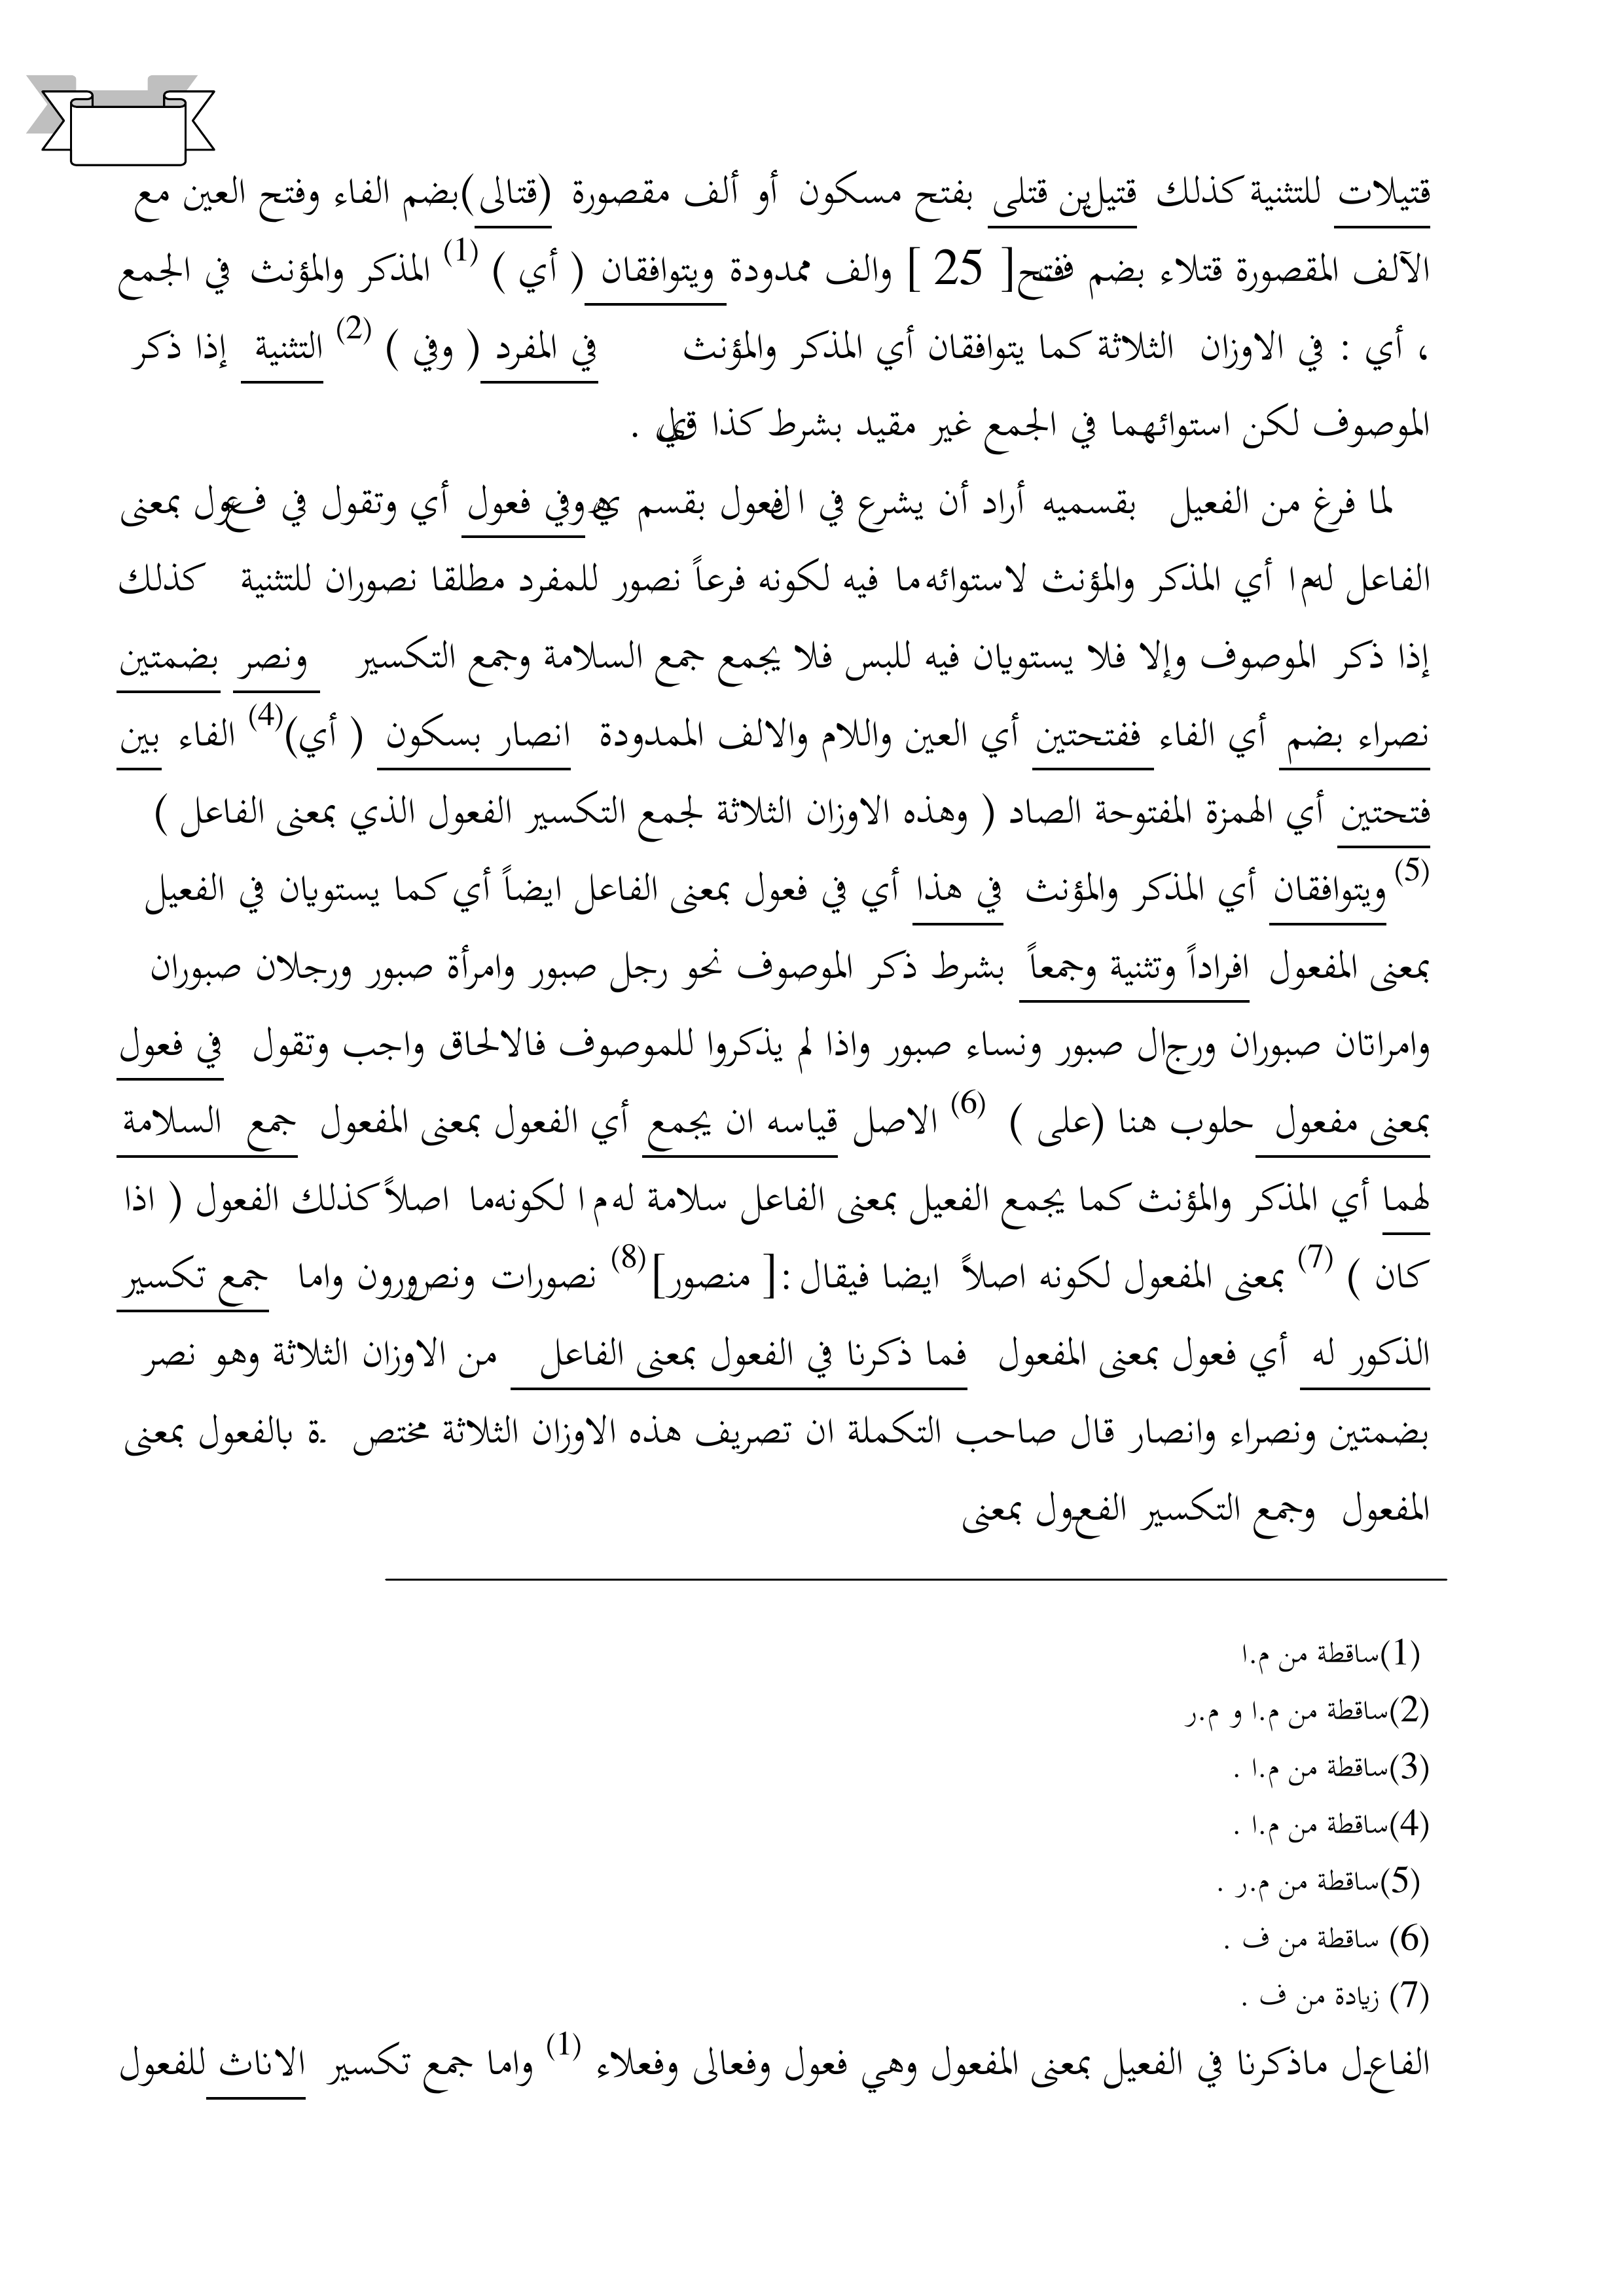 قتيلات للتثنية كذلك قتيلين قتلى بفتح مسكون أو ألف مقصورة (قتالى)بضم الفاء وفتح العين مع
الآلف المقصورة قتلاء بضم ففتح[ 25 ] والف ممدودة ويتوافقان ( أي ) (1) المذكر والمؤنث في الجمع
، أي : في الاوزان الثلاثة كما يتوافقان أي المذكر والمؤنث في المفرد ( وفي ) (2) التثنية إذا ذكر
الموصوف لكن استوائهما في الجمع غير مقيد بشرط كذا قيل .
لما فرغ من الفعيل بقسميه أراد أن يشرع في الفعول بقسميه وفي فعول أي وتقول في فعول بمعنى
الفاعل لهما أي المذكر والمؤنث لاستوائهما فيه لكونه فرعاً نصور للمفرد مطلقا نصوران للتثنية كذلك
إذا ذكر الموصوف وإلا فلا يستويان فيه للبس فلا يجمع جمع السلامة وجمع التكسير ونصر بضمتين
نصراء بضم أي الفاء ففتحتين أي العين واللام والالف الممدودة انصار بسكون ( أي)(4) الفاء بين
فتحتين أي الهمزة المفتوحة الصاد ( وهذه الاوزان الثلاثة لجمع التكسير الفعول الذي بمعنى الفاعل )
(5) ويتوافقان أي المذكر والمؤنث في هذا أي في فعول بمعنى الفاعل ايضاً أي كما يستويان في الفعيل
بمعنى المفعول افراداً وتثنية وجمعاً بشرط ذكر الموصوف نحو رجل صبور وامرأة صبور ورجلان صبوران
وامراتان صبوران ورجال صبور ونساء صبور واذا لم يذكروا للموصوف فالالحاق واجب وتقول في فعول
بمعنى مفعول حلوب هنا (على ) (6) الاصل قياسه ان يجمع أي الفعول بمعنى المفعول جمع السلامة
لهما أي المذكر والمؤنث كما يجمع الفعيل بمعنى الفاعل سلامة لهما لكونهما اصلاً كذلك الفعول ( اذا
كان ) (7) بمعنى المفعول لكونه اصلاً ايضا فيقال :[ منصور](8) نصورات ونصورون واما جمع تكسير
الذكور له أي فعول بمعنى المفعول فما ذكرنا في الفعول بمعنى الفاعل من الاوزان الثلاثة وهو نصر
بضمتين ونصراء وانصار قال صاحب التكملة ان تصريف هذه الاوزان الثلاثة مختصة بالفعول بمعنى
المفعول وجمع التكسير الفعول بمعنى
(1)ساقطة من م.ا
(2)ساقطة من م.ا و م.ر
(3)ساقطة من م.ا .
(4)ساقطة من م.ا .
(5)ساقطة من م.ر .
(6) ساقطة من ف .
(7) زيادة من ف .
الفاعل ماذكرنا في الفعيل بمعنى المفعول وهي فعول وفعالى وفعلاء (1) واما جمع تكسير الاناث للفعول